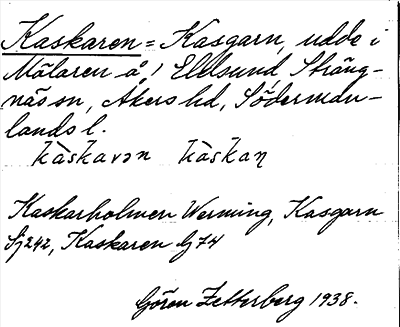 Kaskaren = Kasgarn, udde i
Mälaren å Eldsund, Sträng-
näs sn, Åkers hd, Söderman-
lands l.
kàskarən kàskaņ
Kaskarholmen Werming, Kasgarn
Sj 242, Kaskaren Gj 74
Gören Zetterberg 1938.